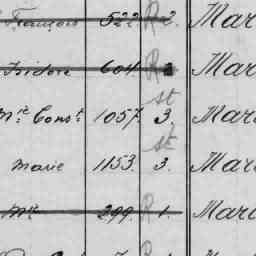 François 522. R 2. Mar
Isidore 604. R Mar
st
Mie Const. 1057. 3. Mar
st
Marie 1153. 3. Mar
Mie 299. R 1. Mar